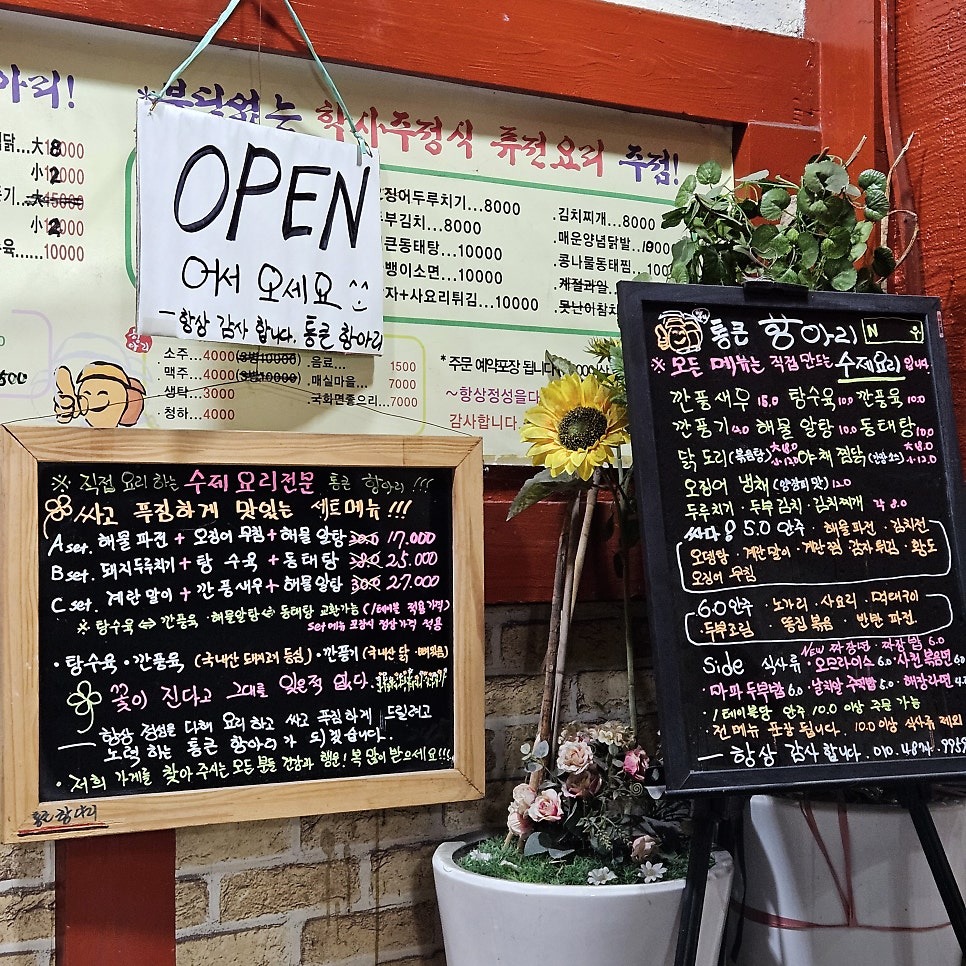 아리!
부담없는 학사주점식 퓨전요리 주점!
닭...大18000
小12000
기...大15000
小12000
육......10000
OPEN
어서 오세요 ^^
-항상 감사 합니다. 통큰 항아리
오징어두루치기...8000
부김치...8000
큰동태탕...10000
뱅이소면...10000
자+사요리튀김...10000
.김치찌개...8000
.매운양념닭발..10000
.콩나물동태찜..100
.계절과일
.못난이참치
항아리
소주...4000(3병10000)
맥주...4000(3병10000)
·생탁...3000
·청하...4000
음료... 1500
·매실마을... 7000
·국화면좋으리...7000
*주문 예약포장 됩니다
~항상정성을다
감사합니다.
※ 직접 요리 하는 수제 요리전문 통큰 항아리 !!!
싸고 푹짐하게 맛있는 세트메뉴 !!!
A set. 해물 파전 + 오징어 무침 + 해물 알탕 30.0 17.000
B set. 돼지두루치기 + 탕수육 + 동태탕 25.000
C set. 계란 말이 + 깐풍새우 + 해물알탕 30.0 27.000
※ 탕수육 ↔ 깐풍육 · 해물알탕 ↔ 동태탕 교환가능 (1테이블 적용가격)
set메뉴 포장시 정상가격 적용
· 탕수육 · 깐풍육 (국내산 돼지고기 등심) · 깐풍기 (국내산 닭 · 뼈있음)
꽃이 진다고 그대를 잊은적 없다.
항상 정성을 다해 요리 하고 싸고 푹짐하게 드릴려고
노력 하는 통큰 항아리 가 되겠습니다.
· 저희 가게를 찾아 주시는 모든 분들 건강과 행운! 복 많이 받으세요!!!
통큰 항아리
통큰 항아리
※ 모든 메뉴는 직접 만드는 수제요리 입니다
깐풍새우 15.0 탕수육 10.0 깐풍육 10.0
깐풍기 해물 알탕 10.0 동태탕 10.0
닭 도리(볶음탕) 大18.0 小12.0 야채 찜닭 (간장소스) 大18.0 小12.0
오징어 냉채 (양장피 맛) 12.0
두루치기 · 두부김치 · 김치찌개 각 8.0
싸다 5.0 안주 · 해물파전 · 김치전
오뎅탕 · 계란말이 · 계란찜 · 감자튀김 · 황도
오징어 무침
6.0안주 · 노가리 · 사요리 · 먹태구이
두부조림 · 똥집볶음 · 반반 파전
New 짜장면 · 짜장밥 6.0
Side 식사류 · 오므라이스 6.0 · 사천 볶음면 6.0
· 마파 두부밥 6.0 날치알 주먹밥 5.0 · 해장라면
1테이블당 안주 10.0 이상 주문 가능
· 전 메뉴 포장 됩니다. 10.0 이상 식사류 제외
- 항상 감사 합니다.